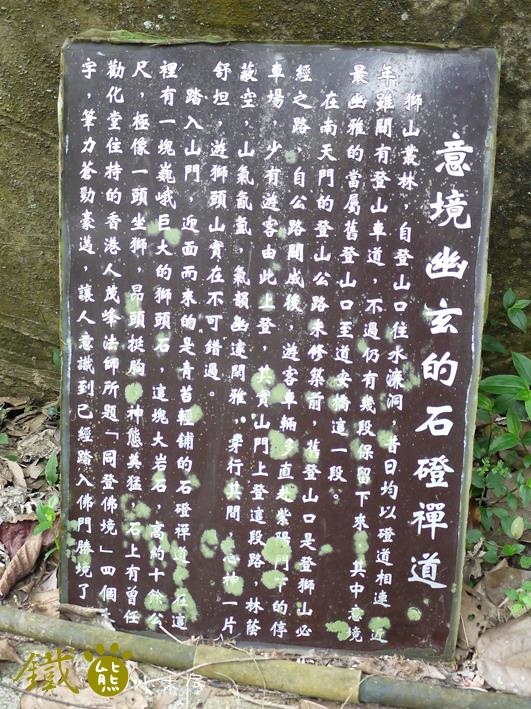 意境幽玄的石磴禪道
獅山叢林，自登山口往水濂洞，昔日均以磴道相連，近
年雖間有登山車道，不過仍有幾段保留下來，其中意境
最幽雅的當屬舊登山口至道安橋這一段。
在南天門的登山公路未修築前，舊登山口是登獅山必
經之路，自公路開成後，遊客車輛多直赴紫陽門下的停
車場，少有遊客由此上登，其實山門上登這段路，林蔭
蔽空，山氣氤氳，氣韻幽邃閒雅，穿行其間，心神一片
舒坦，遊獅頭山實在不可錯過。
踏入山門，迎面而來的是青苔輕鋪的石磴禪道，在這
裡有一塊巍峨巨大的獅頭石，這塊大岩石，高約十餘公
尺，極像一頭坐獅，昂頭挺胸，神態美猛，石上有曾任
勸化堂住持的香港人茂峰法師所題「同登佛境」四個大
字，筆力蒼勁豪邁，讓人意識到已經踏入佛門勝境了
鐵熊